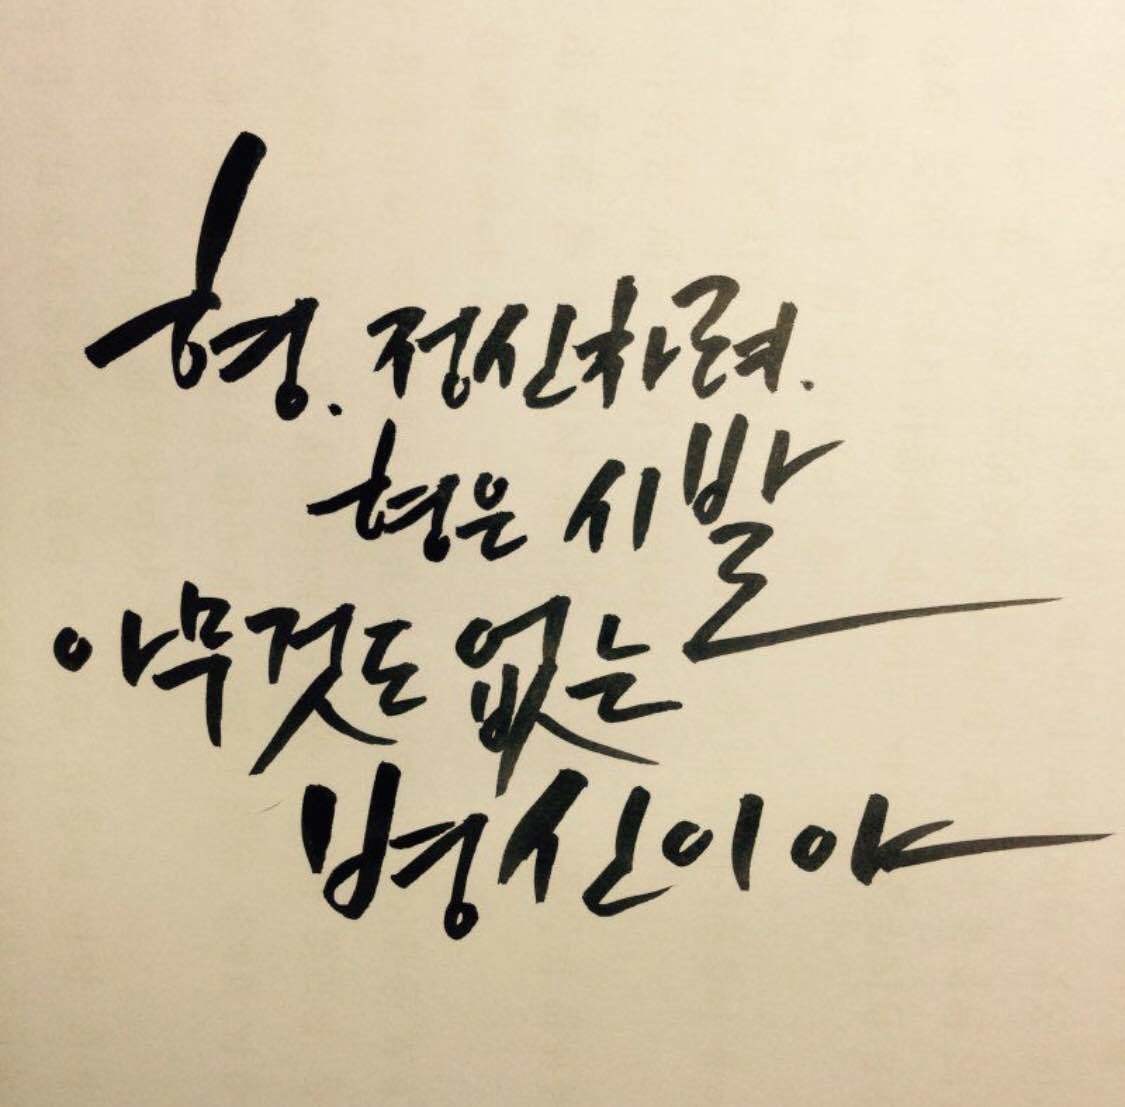 형. 정신차려.
형은 시발
아무것도 없는
병신이야